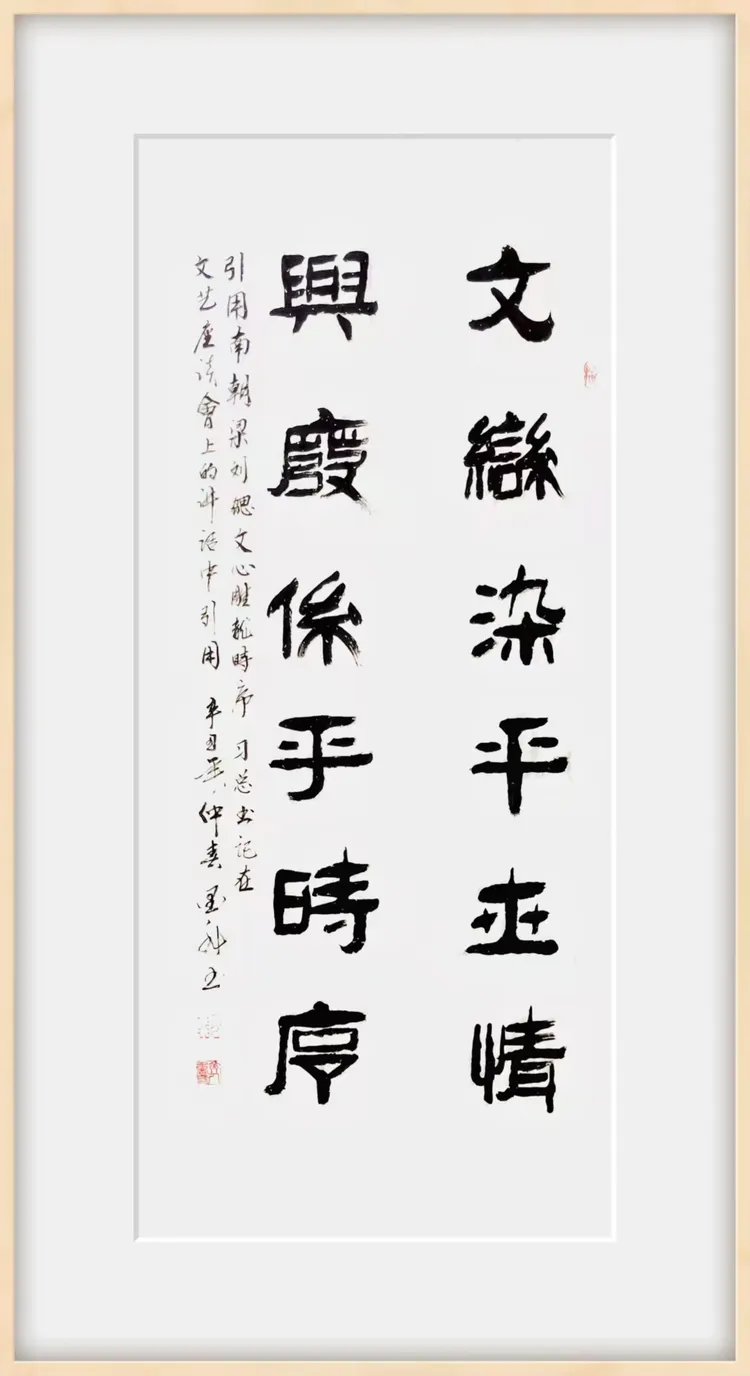 文變染乎世情
興廢係乎時序
引用南朝梁刘勰文心雕龍時序 习总书记在
文艺座谈會上的讲话中引用 辛丑 仲春